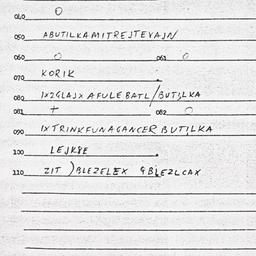 040 O
050 ABUTILKAMITRESTEVAJN
060 O 061 O
070 KORIK
080 1X2GLASXAFULEBATL/BUTJLKA
081 + 082 O
090 1XTRINKFUNAGANCERBUTILKA
100 LEJKSE
110 ZIT )BLEZELEX GBLEZLCAX